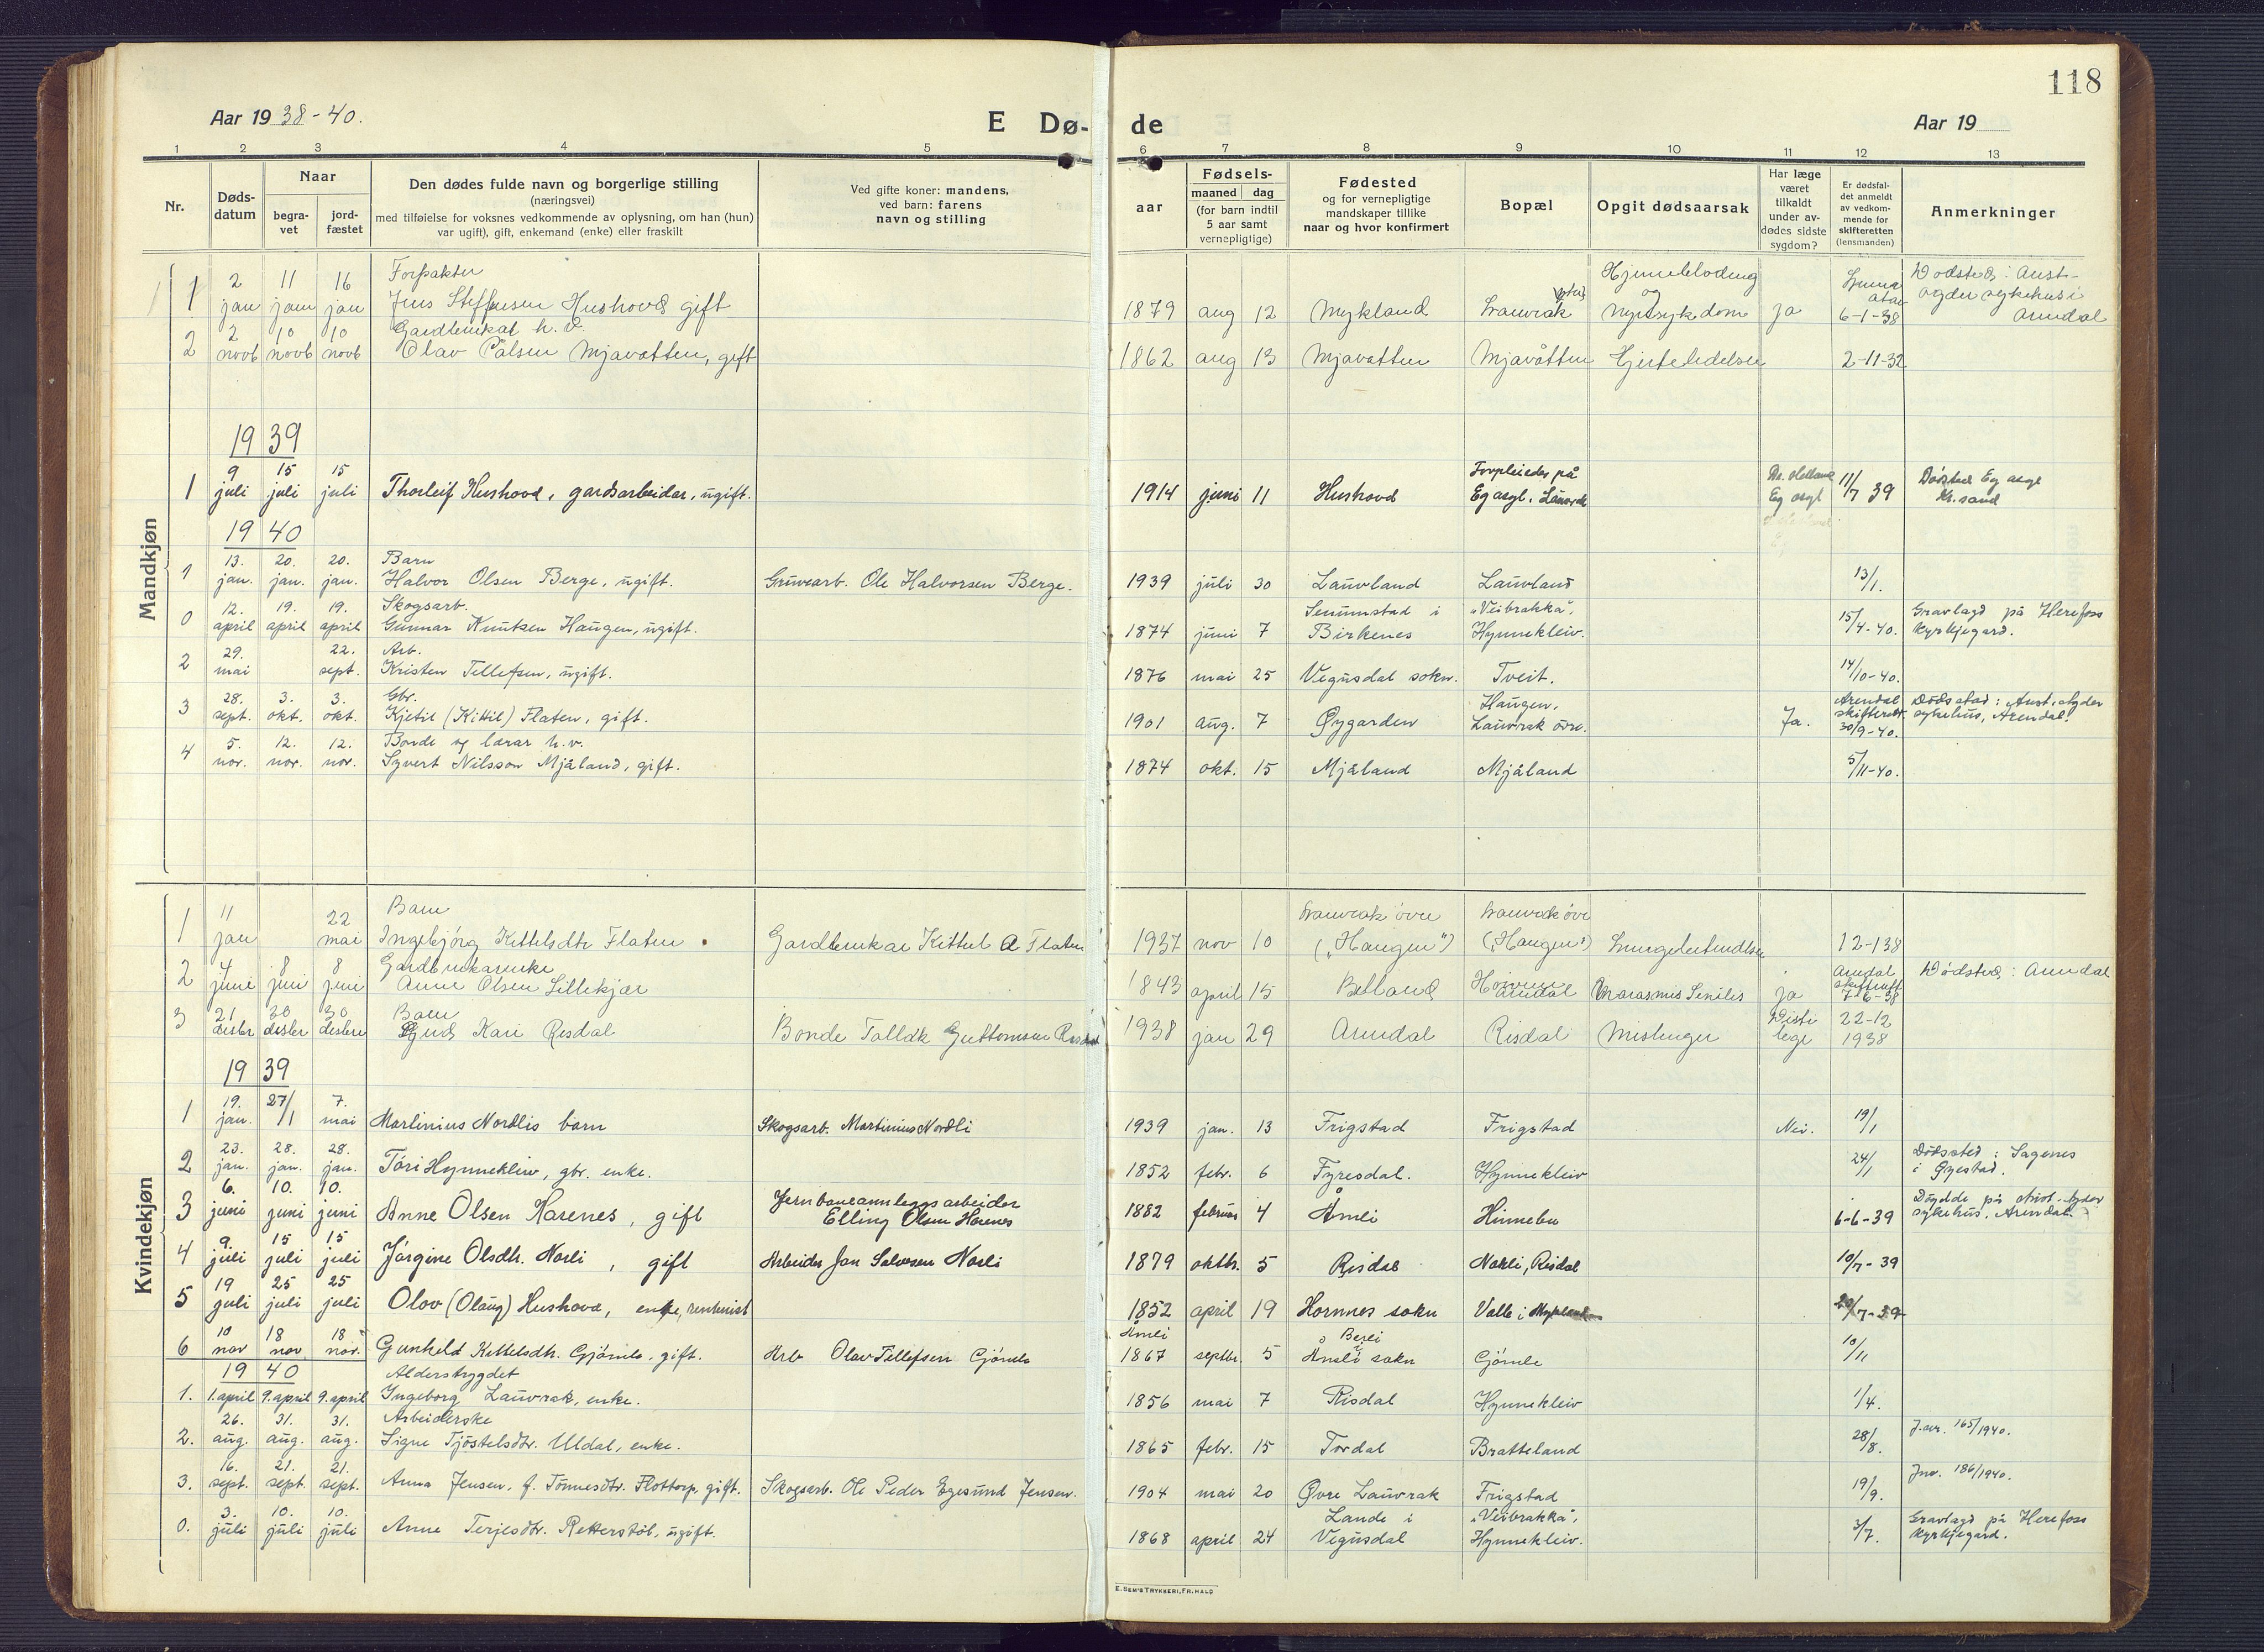 118
Aar 19 38-40.
E Dø-
de
Aar 19
1 2 3 4 5
6 7 8 9 10 11 12 13
Nr.
Døds-
datum
Naar
begra-
vet
jord-
fæstet
Den dødes fulde navn og borgerlige stilling
(næringsvei)
med tilføielse for voksnes vedkommende av oplysning, om han (hun)
var ugift), gift, enkemand (enke) eller fraskilt
Ved gifte koner: mandens,
ved barn: farens
navn og stilling
aar
Fødsels-
maaned dag
(for barn indtil
5 aar samt
vernepligtige)
Fødested
og for vernepligtige
mandskaper tillike
naar og hvor konfirmert
Bopæl
Opgit dødsaarsak
Har læge
været
tilkaldt
under av-
dødes sidste
sygdom?
Er dødsfal-
det anmeldt
av vedkom-
mende for
skifteretten
(lensmanden)
Anmerkninger
Mandkjøn
2 11 16 Forpakter
1 jan jan jan Jens Steffensen Hushovd gift
1879 aug 12 Mykland Lauvrak og nyresykdom Ja 6-1-38
Dødsted: Aust-
agder sykehus i
Arendal
2 10 10 Gardbrukar h.v.
2 novb novb novb Olav Pålsen Mjavatten, gift
1862 aug 13 Mjavatten Mjavåtten Hjertelidelse 2-11-32
1939
9 15 15
1 juli juli juli Thorleif Hushovd, gardsarbeider, ugift.
Forpleiedes på
1914 juni 11 Hushovd Eg asyl. Eg asyl 11/7 39
Dødsted Eg asyl
Kr.sand
1940
13. 20. 20. Barn
1 jan. jan. jan. Halvor Olsen Berge, ugift. Gruvearb. Ole Halvorsen Berge.
1939 juli 30 Lauvland Lauvland 13/1.
12. 19. 19. Skogsarb.
0 april april april Gunnar Knutsen Haugen, ugift.
Senumstad i "Veibrakka",
1874 juni 7 Birkenes Hynnekleiv. 15/4-40.
Gravlagd på Herefoss
kyrkjegard.
29. 22. Arb.
2 mai sept. Kristen Tellefsen, ugift.
1876 mai 25 Vegusdal sokn. Tveit. 14/10-40.
28. 3. 3. Gbr.
3 sept. okt. okt. Kjetil (Kittil) Flaten, gift.
Haugen,
1901 aug. 7 Øygarden Lauvrak øvre. Ja. Arendal skifterett 30/9-40.
Dødsstad: Aust-Agder
sykehus, Arendal.
5. 12. 12. Bonde og lærar h.v.
4 nov. nov. nov. Syvert Nilsson Mjåland, gift.
1874 okt. 15 Mjåland Mjåland 5/11-40.
Kvindekjøn
11 22 Barn
1 jan mai Ingebjørg Kittelsdtr Flaten Gardbrukar Kittel A Flaten
Lauvrak øvre Lauvrak øvre
1937 nov 10 ("Haugen") ("Haugen") Lungebetendelse 12-138
4 8 8 Gardbrukarenke
2 juni juni juni Anne Olsen Lillekjær
1843 april 15 Arendal Marasmus Senilis ja Arendal skifterett 7-6-38 Dødsted: Arendal
21 30 30 Barn
3 desbr desbr desbr Gud Kari Risdal Bonde Tallak Guttomsen Risdal
1938 jan 29 Arendal Risdal Meslinger Distr lege 22-12 1938
1939
19. 27/1 7.
1 jan. mai Martinius Nordlis barn Skogsarb. Martinius Nordli
1939 jan. 13 Frigstad Frigstad Nei. 19/1
23. 28. 28.
2 jan. jan. jan. Tori Hynnekleiv, gbr. enke.
1852 febr. 6 Fyresdal. Hynnekleiv 24/1
Dødsted: Sagenes
i Øyestad.
6. 10. 10. Jernbaneanleggsarbeider
3 juni juni juni Anne Olsen Harenes, gift Elling Olsen Harenes
1882 februar 4 Åmli Hinnebu 6-6-39
Døydde på Aust-Agder
sykehus, Arendal.
9. 15 15
4 juli juli juli Jørgine Olsdtr. Norli, gift Arbeider Jon Salvesen Norli
1879 oktbr. 5 Risdal Norli, Risdal 10/7-39
19 25 25
5 juli juli juli Olov (Olaug) Hushovd, enke, rentenist
1852 april 19 Hornnes sokn Valle i Mykland 20/7-39
10 18 18
6 nov nov nov. Gunhild Kittelsdtr. Gjømle, gift. Arb Olav Tellefsen Gjømle
1867 septbr. 5 Åmli sokn Gjømle 10/11
1940
Alderstrygdet
1. 1.april 9.april 9.april Ingeborg Lauvrak, enke.
1856 mai 7 Risdal Hynnekleiv 1/4.
26. 31. 31. Arbeiderske
2. aug. aug. aug. Signe Tjøstelsdtr. Uldal, enke.
1865 febr. 15 Tordal Bratteland 28/8. J.nr. 165/1940.
16. 21. 21.
3. sept. sept. sept. Anna Jensen, f. Tønnesdtr. Flottorp, gift. Skogsarb. Ole Peder Egesund Jensen.
1904 mai 20 Øvre Lauvrak Frigstad 19/9. Jnr. 186/1940.
3. 10. 10.
0. juli juli juli Anne Terjesdtr. Retterstøl, ugift.
Lande i "Veibrakka",
1868 april 24 Vegusdal Hynnekleiv. 3/7.
Gravlagd på Herefoss
kyrkjegard.
E. SEM'S TRYKKERI, FR.HALD